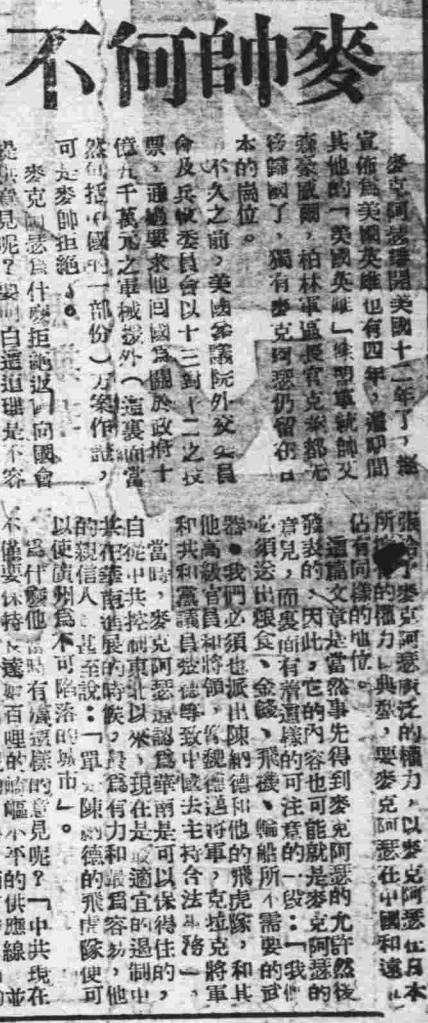 麥帥何不
麥克阿瑟離開美國十二年了，
宣佈為美國英雄也有四年，這期間
其他的「美國英雄」使盟軍統帥艾
森豪威爾，柏林軍區長官克萊都先
後歸國了，獨有麥克阿瑟仍留在日
本的崗位。
不久之前，美國參議院外交委員
會及兵役委員會以十三對十二之投
票，通過要求他回國為關於政府十
億五千萬元之軍械援外（這裏面當
然包括中國的一部份）方案作證，
可是麥帥拒絕了。
麥克阿瑟為什麼拒絕返國向國會
提供意見呢？要明白這道理是不容
張給予麥克阿瑟廣泛的權力，以麥克阿瑟在日本
所 的權力 典型，要麥克阿瑟在中國和遠
佔有同樣的地位。
這篇文章是當然事先得到麥克阿瑟的允許然後
發表的，因此，它的內容也可能就是麥克阿瑟的
意見，而裏面有着這樣的可注意的一段：「我們
必須送出糧食、金錢、飛機、輪船所不需要的武
器。我們必須也派出陳納德和他的飛虎隊，和其
他高級官員和將領，像魏德邁將軍，克拉克將軍
和共和黨議員 德等致中國去主持合法 務」，
當時，麥克阿瑟還認為華南是可以保得住的，
自從中共控制東北以來，現在是最適宜的遏制中
共在華南進展的時候，最為有力和最為容易，他
的親信人 甚至說：「單是陳納德的飛虎隊便可
以使廣州為不可陷落的城市」。
為什麼他當時有這樣的意見呢？「中共現在
不僅要保持 遠 百里的崎嶇不平的供應線，並